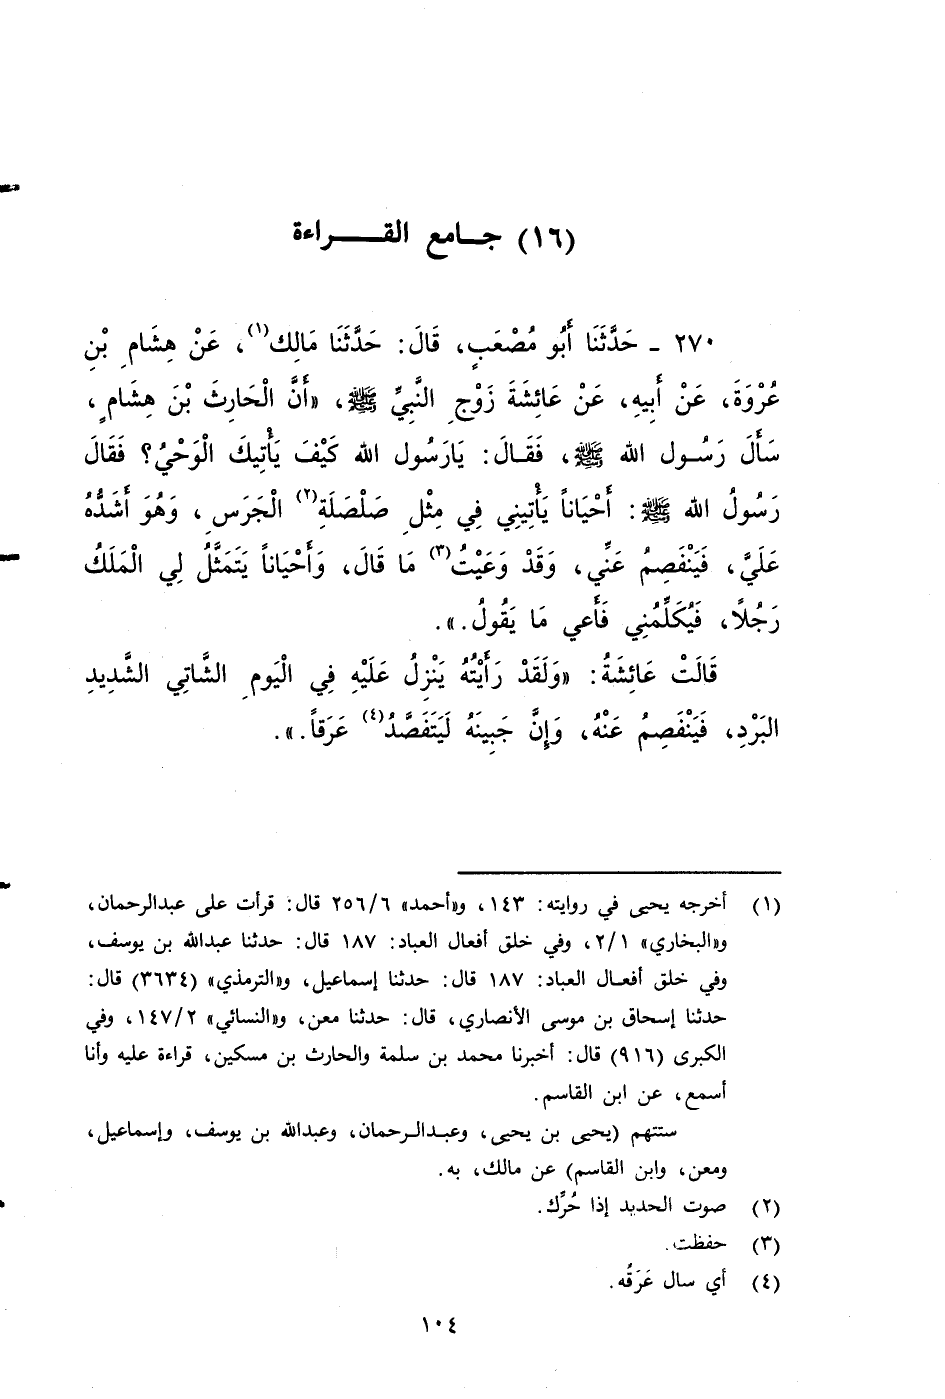 (١٦) جـامع القـــراءة
٢٧٠ ـ حَدَّثَنَا أَبُو مُصْعَبٍ، قَالَ: حَدَّثَنَا مَالِك(١)، عَنْ هِشَامِ بْنِ
عُرْوَةَ، عَنْ أَبِيهِ، عَنْ عَائِشَةَ زَوْجِ النَّبِيِّ ﷺ، «أَنَّ الْحَارِثَ بْنَ هِشَامٍ،
سَأَلَ رَسُـول الله ﷺ، فَقَـالَ: يَارَسُول الله كَيْفَ يَأْتِيكَ الْوَحْيُ؟ فَقَالَ
رَسُولُ الله ﷺ: أَحْيَاناً يَأْتِينِي فِي مِثْلِ صَلْصَلَةِ(٢) الْجَرَسِ، وَهُوَ أَشَدُّهُ
عَلَيَّ، فَيَنْفَصِمُ عَنِّي، وَقَدْ وَعَيْتُ(٣) مَا قَالَ، وَأَحْيَاناً يَتَمَثَّلُ لِي الْمَلَكُ
رَجُلًا، فَيُكَلِّمُنِي فَأَعي مَا يَقُولُ.».
قَالَتْ عَائِشَةُ: «وَلَقَدْ رَأَيْتُهُ يَنْزِلُ عَلَيْهِ فِي الْيَومِ الشَّاتِي الشَّدِيدِ
البَرْدِ، فَيَنْفَصِمُ عَنْهُ، وَإِنَّ جَبِينَهُ لَيَتَفَصَّدُ(٤) عَرَقاً.».
(١) أخرجه يحيى في روايته: ١٤٣، و«أحمد» ٢٥٦/٦ قال: قرأت على عبدالرحمان،
و«البخاري» ٢/١، وفي خلق أفعال العباد: ١٨٧ قال: حدثنا عبدالله بن يوسف،
وفي خلق أفعـال العباد: ١٨٧ قال: حدثنا إسماعيل، و«الترمذي» (٣٦٣٤) قال:
حدثنا إسحاق بن موسى الأنصاري، قال: حدثنا معن، و«النسائي» ١٤٧/٢، وفي
الكبرى (٩١٦) قال: أخبرنا محمد بن سلمة والحارث بن مسكين، قراءة عليه وأنا
أسمع، عن ابن القاسم.
ستتهم (يحيى بن يحيى، وعبـدالـرحمان، وعبدالله بن يوسف، وإسماعيل،
ومعن، وابن القاسم) عن مالك، به.
(٢) صوت الحديد إذا حُرِّك.
(٣) حفظت.
(٤) أي سال عَرَقُه.
١٠٤